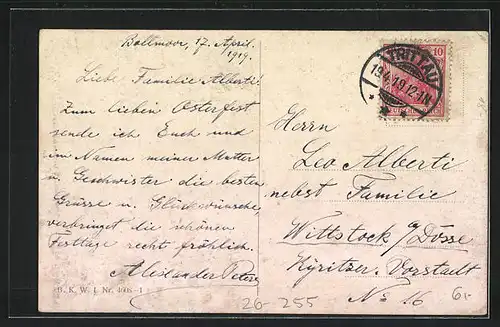 Bollmoor, 17. April.
1919.
Liebe Familie Alberti!
Zum lieben Osterfest
sende ich Euch und
im Namen meiner Mutter
u. Geschwister die besten
Grüsse u. Glückwünsche,
verbringet die schönen
Festtage recht fröhlich.
Alexander Peters
B. K. W. I. Nr.
TRITTAU
19.4.19.12-1N
10
Herrn
Leo Alberti
nebst Familie
Wittstock a/Dosse
Kyritzer Vorstadt
No 16
26-255
6,-